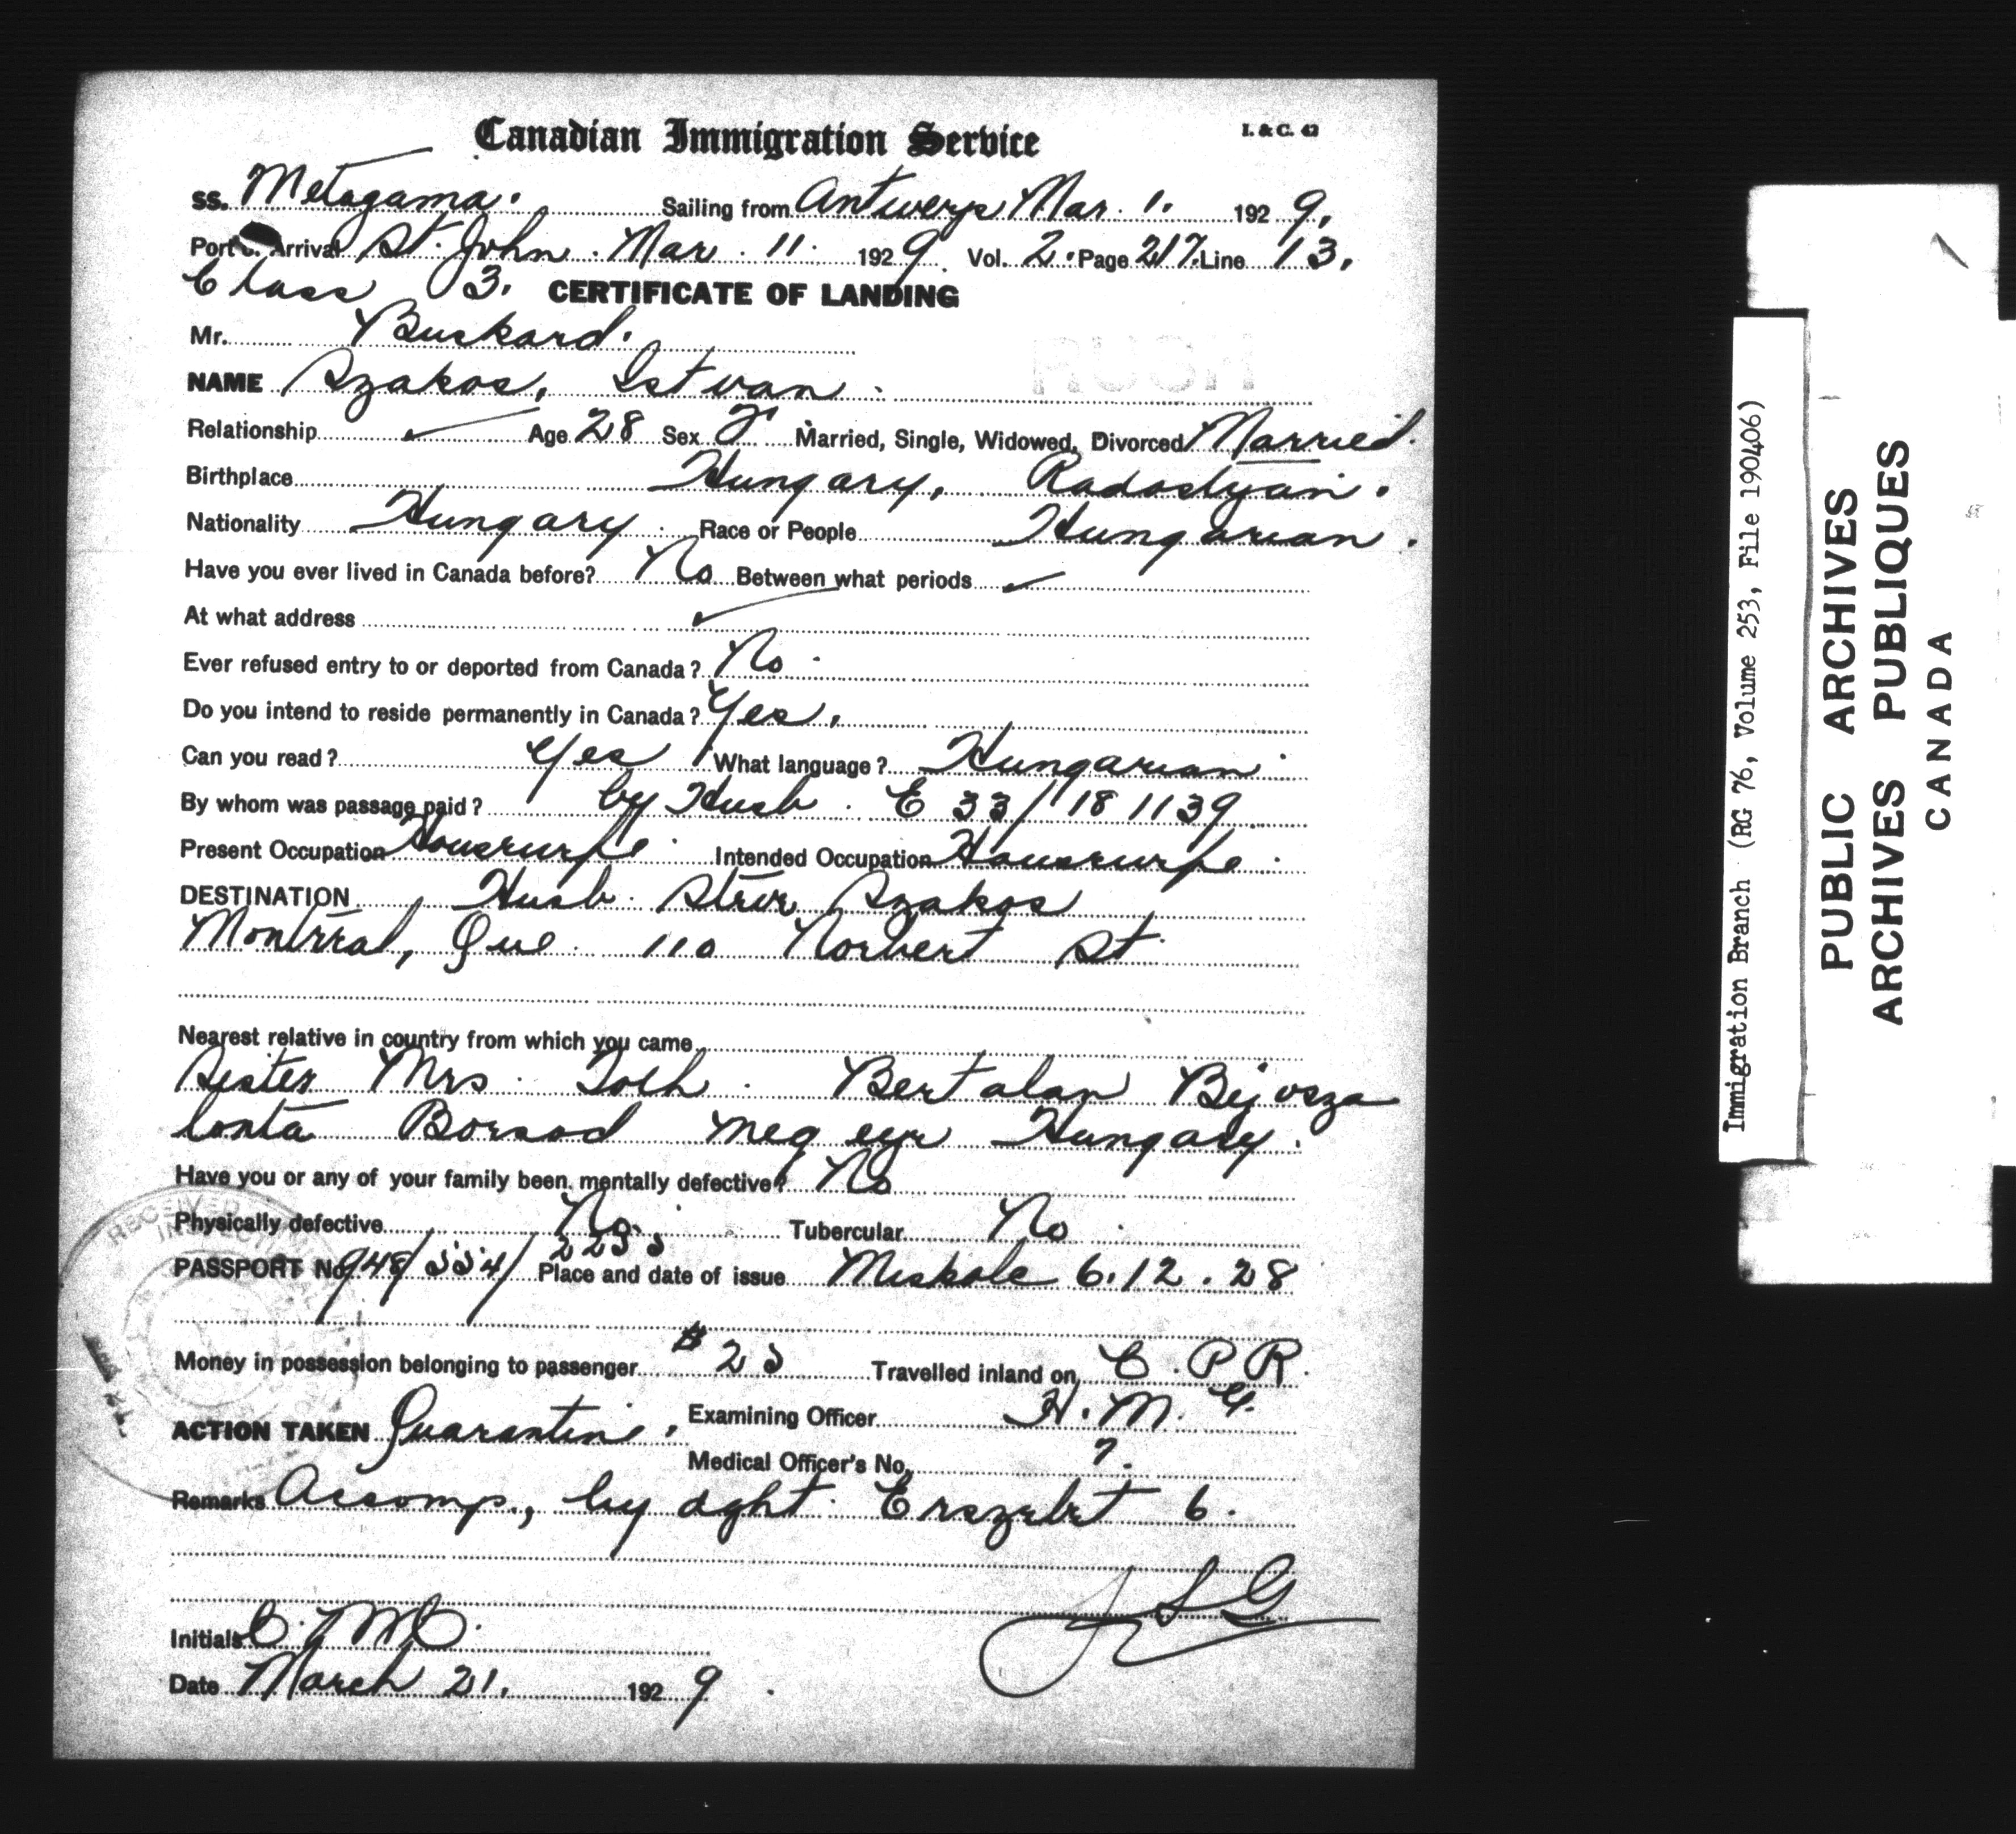 Canadian Immigration Service I. & C. 42
SS. Metagama. Sailing from Antwerp Mar. 1. 1929.
Port of Arrival St. John. Mar. 11. 1929. Vol. 2. Page 217. Line 13.
Class 3. CERTIFICATE OF LANDING
Mr. Buskard.
RUSH
NAME Szakos, Istvan.
Relationship Age 28 Sex F Married, Single, Widowed, Divorced Married.
Birthplace Hungary, Radostyan.
Nationality Hungary. Race or People Hungarian.
Have you ever lived in Canada before? No Between what periods
At what address
Ever refused entry to or deported from Canada? No.
Do you intend to reside permanently in Canada? Yes.
Can you read? Yes What language? Hungarian
By whom was passage paid? by Husb. E 33/181139
Present Occupation Housewife. Intended Occupation Housewife.
DESTINATION Husb. Szakos
Montreal, Que. 110 Norbert St.
Nearest relative in country from which you came
Sister Mrs. Toth. Bertalan Bejosza
lonta Borsod meg eye Hungary.
Have you or any of your family been mentally defective? No
Physically defective No. Tubercular No.
PASSPORT No. Place and date of issue Miskolc 6.12.28
Money in possession belonging to passenger $25 Travelled inland on C.P.R.
Examining Officer H.M.
ACTION TAKEN Quarantine.
Medical Officer's No. 7.
Remarks Accomp., by dght. Erszebet 6.
Initials
Date March 21. 1929.
RECEIVED
Immigration Branch (RG 76, Volume 253, File 190406)
PUBLIC ARCHIVES
ARCHIVES PUBLIQUES
CANADA